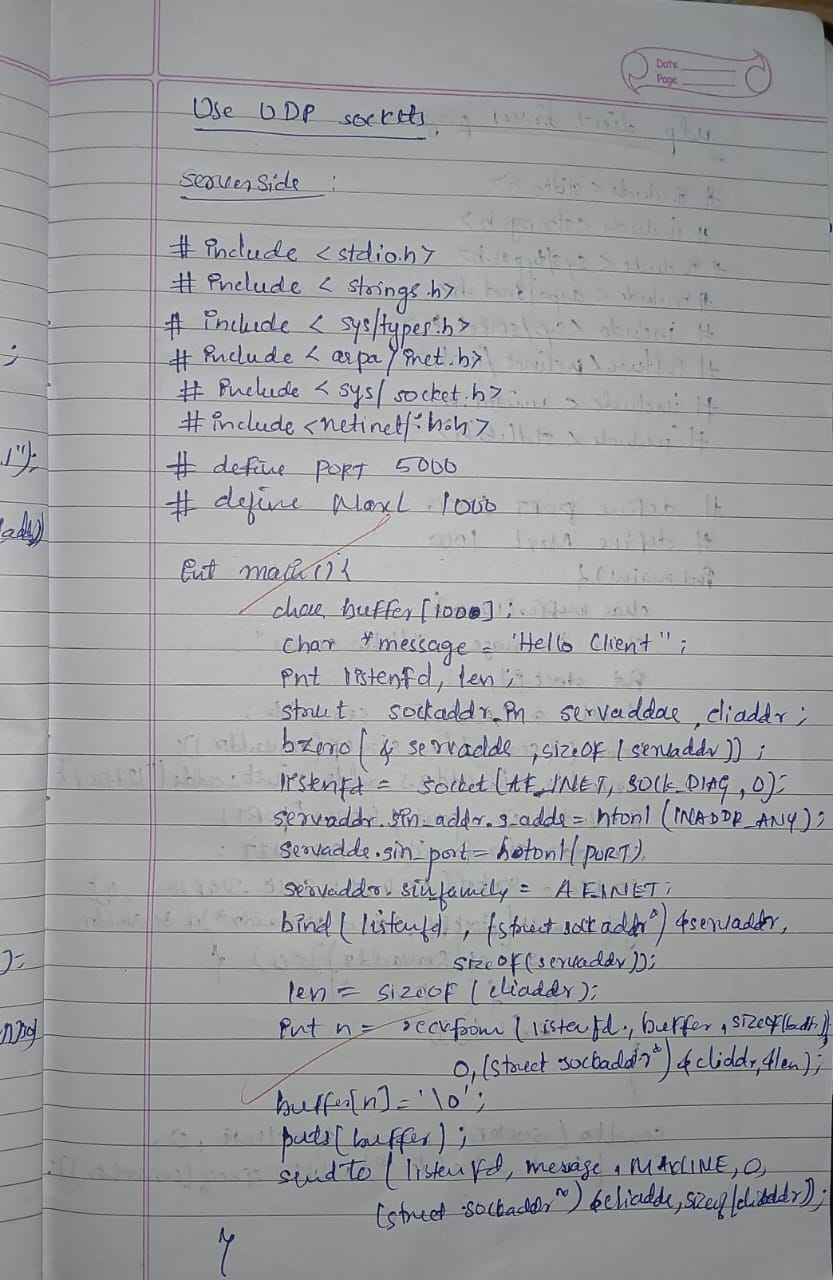 Date
Page
Use UDP sockets.
Serverside :
# include <stdio.h>
# include < strings.h>
# include < sys/types.h>
# include < arpa/inet.h>
# include < sys/ socket.h>
# include <netinet/in.h>
# define PORT 5000
# define Maxl 1000
int main(){
char buffer[1000];
char *message = "Hello Client" ;
int listenfd, len ;
struct sockaddr_in servaddr, cliaddr ;
bzero( & servaddr, sizeof (servaddr)) ;
listenfd = socket (AF_INET, SOCK_DIAG, 0);
servaddr.sin_addr.s_addr = htonl (INADDR_ANY) ;
servaddr.sin_port = hotonl(PORT)
servaddr. sinfamily = AF_INET ;
bind ( listenfd , (struct sockaddr*) &servaddr,
sizeof(servaddr));
len = sizeof (cliaddr);
int n = recvfrom (listenfd, buffer, sizeof(buffer)
0, (struct sockaddr*) &cliddr, &len) ;
buffer[n] = '\0' ;
puts( buffer) ;
sendto ( listenfd, message, MAXLINE, 0,
(struct sockaddr*) &cliaddr, sizeof(cliaddr)) ;
}
);